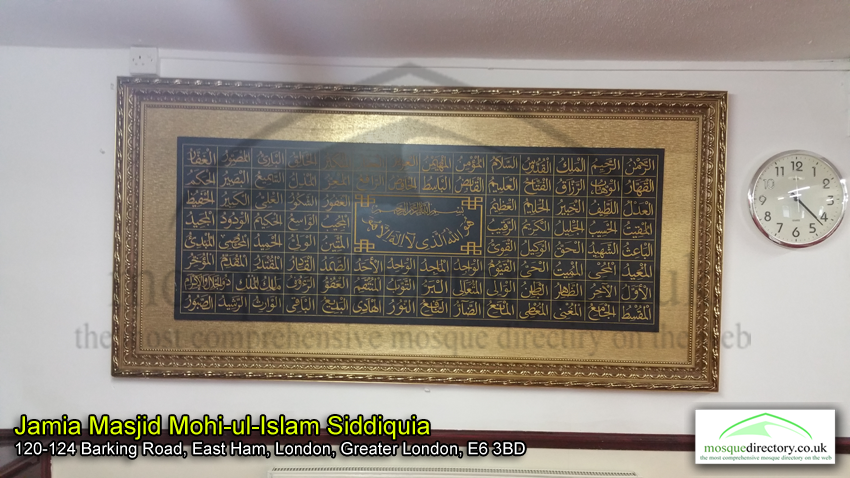 الرحمن الرحيم الملك القدوس السلام المؤمن المهيمن العزيز الجبار المتكبر الخالق البارئ المصور الغفار
القهار الوهاب الرزاق الفتاح العليم القابض الباسط الخافض الرافع المعز المذل السميع البصير الحكم
العدل اللطيف الخبير الحليم العظيم الغفور الشكور العلي الكبير الحفيظ
بسم الله الرحمن الرحيم
المقيت الحسيب الجليل الكريم الرقيب المجيب الواسع الحكيم الودود المجيد
هو الله الذي لا اله الا هو
الباعث الشهيد الحق الوكيل القوي المتين الولي الحميد المحصي المبدئ
المعيد المحيي المميت الحي القيوم الواجد الماجد الواحد الأحد الصمد القادر المقتدر المقدم المؤخر
الأول الآخر الظاهر الباطن الوالي المتعالي البر التواب المنتقم العفو الرءوف مالك الملك ذو الجلال والإكرام
المقسط الجامع الغني المغني المانع الضار النافع النور الهادي البديع الباقي الوارث الرشيد الصبور
the most comprehensive mosque directory on the web
Jamia Masjid Mohi-ul-Islam Siddiquia
120-124 Barking Road, East Ham, London, Greater London, E6 3BD
mosquedirectory.co.uk
the most comprehensive mosque directory on the web